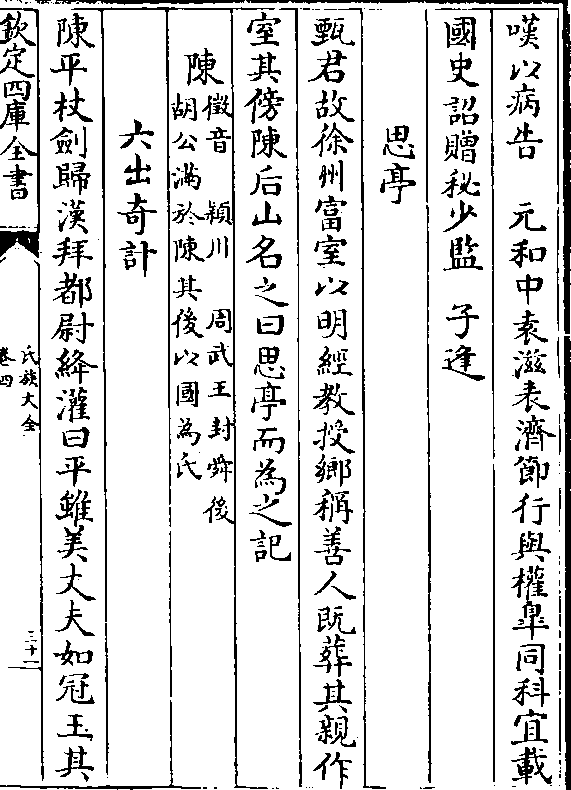 嘆以病告　元和中袁滋表濟節行與權臯同科宜載
國史詔贈秘少監　子逢
思亭
甄君故徐州富室以明經教授鄉稱善人既葬其親作
室其傍陳后山名之曰思亭而為之記
陳　徵音　潁川　周武王封舜後
胡公滿於陳其後以國為氏
六出奇計
陳平杖劍歸漢拜都尉絳灌曰平雖美丈夫如冠玉其
欽定四庫全書
氏族大全
卷四
三十二